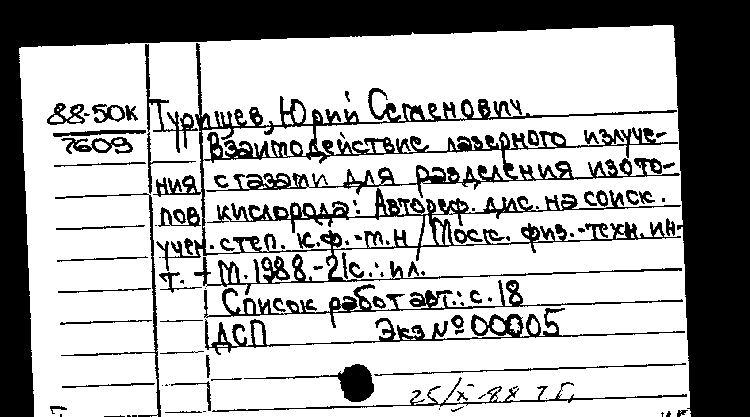 88-50К
7609
Турищев, Юрий Семенович.
Взаимодействие лазерного излуче-
ния с газами для разделения изото-
пов кислорода: Автореф. дис. на соиск.
учен. степ. к.ф.-т.н / Моск. физ.-техн. ин-
т. - М. 1988.-21с.: ил.
Список работ авт.: с. 18
ДСП Экз № 00005
25/X-88